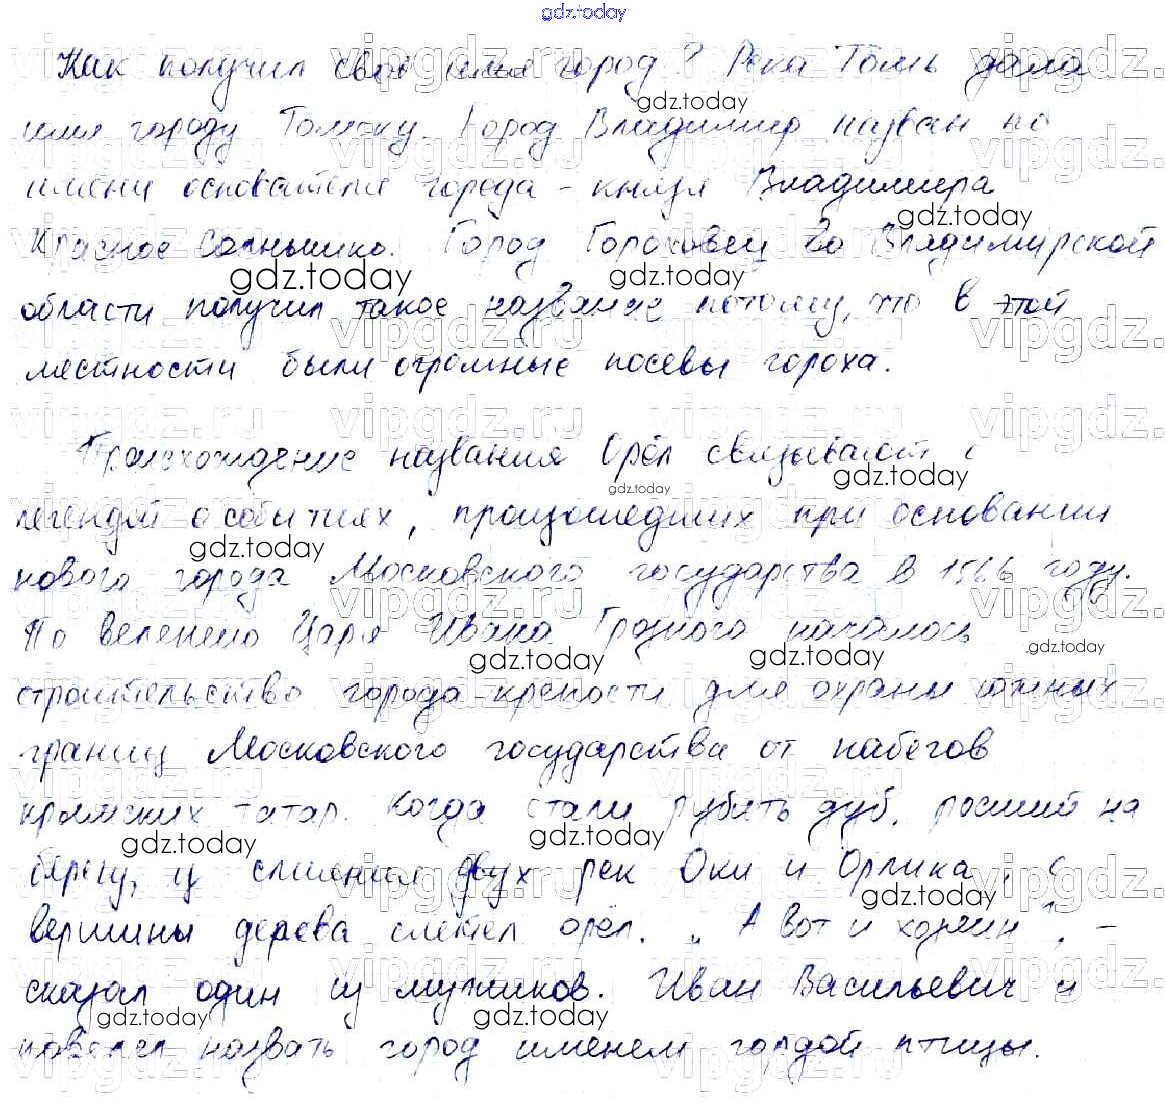 gdz.today
Как получил своё имя город? Река Томь дала
имя городу Томску. Город Владимир назван по
имени основателя города - князя Владимира
Красное Солнышко. Город Гороховец во Владимирской
области получил такое название потому, что в этой
местности были огромные посевы гороха.
Происхождение названия Орёл связывают с
легендой о событиях, произошедших при основании
нового города Московского государства в 1566 году.
По велению Царя Ивана Грозного началось
строительство города-крепости для охраны южных
границ Московского государства от набегов
крымских татар. Когда стали рубить дуб, росший на
берегу, у слияния двух рек Оки и Орлика, с
вершины дерева слетел орёл. „А вот и хозяин", -
сказал один из мужиков. Иван Васильевич и
повелел назвать город именем гордой птицы.